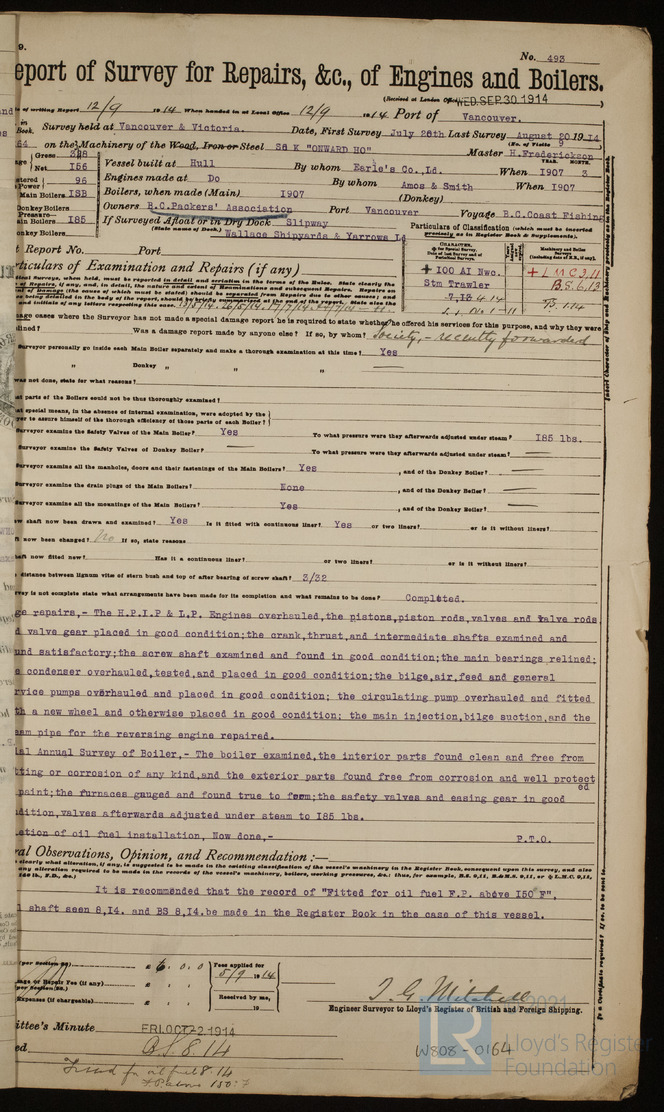 9.
No. 493
eport of Survey for Repairs, &c., of Engines and Boilers.
(Received at London Office WED. SEP. 30 1914
of writing Report 12/9 1914 When handed in at Local Office 12/9 1914 Port of Vancouver.
Book. Survey held at Vancouver & Victoria. Date, First Survey July 28th Last Survey August 20 1914
(No. of Visits 9
64 on the Machinery of the Wood, Iron or Steel SS K "ONWARD HO" Master H.Frederickson
Gross 328
Net 156
YEAR. MONTH.
Vessel built at Hull By whom Earle's Co.,Ld. When 1907 3
96 Engines made at Do By whom Amos & Smith When 1907
Main Boilers ISB Boilers, when made (Main) 1907 (Donkey)
Donkey Boilers
Owners B.C.Packers' Association Port Vancouver Voyage B.C.Coast Fishing
Pressure—
in Boilers 185 If Surveyed Afloat or in Dry Dock Slipway
(State name of Dock.) Wallace Shipyards & Yarrows Ld
onkey Boilers
Particulars of Classification (which must be inserted precisely as in Register Book & Supplements).
t Report No. Port
rticulars of Examination and Repairs (if any)
+ 100 AI Nwc.
Stm Trawler
+ L M C 2,11
B.S. 6,13
age cases where the Surveyor has not made a special damage report he is required to state whether he offered his services for this purpose, and why they were
lined? Was a damage report made by anyone else? If so, by whom? Society, - recently forwarded
Surveyor personally go inside each Main Boiler separately and make a thorough examination at this time? Yes
" Donkey " " "
was not done, state for what reasons?
at parts of the Boilers could not be thus thoroughly examined?
at special means, in the absence of internal examination, were adopted by the
yor to assure himself of the thorough efficiency of those parts of each Boiler?
Surveyor examine the Safety Valves of the Main Boiler? Yes To what pressure were they afterwards adjusted under steam? 185 lbs.
Surveyor examine the Safety Valves of Donkey Boiler? To what pressure were they afterwards adjusted under steam?
Surveyor examine all the manholes, doors and their fastenings of the Main Boilers? Yes , and of the Donkey Boiler?
Surveyor examine the drain plugs of the Main Boilers? None , and of the Donkey Boiler?
Surveyor examine all the mountings of the Main Boilers? Yes , and of the Donkey Boiler?
ew shaft now been drawn and examined? Yes Is it fitted with continuous liner? Yes or two liners? or is it without liners?
ft now been changed? No If so, state reasons
haft now fitted new? Has it a continuous liner? or two liners? or is it without liners?
distance between lignum vitæ of stern bush and top of after bearing of screw shaft? 3/32
rvey is not complete state what arrangements have been made for its completion and what remains to be done? Completed.
ge repairs,- The H.P.I.P & L.P. Engines overhauled, the pistons,piston rods,valves and valve rods
d valve gear placed in good condition;the crank,thrust,and intermediate shafts examined and
und satisfactory;the screw shaft examined and found in good condition;the main bearings relined;
e condenser overhauled,tested,and placed in good condition;the bilge,air,feed and general
rvice pumps overhauled and placed in good condition; the circulating pump overhauled and fitted
th a new wheel and otherwise placed in good condition; the main injection,bilge suction,and the
eam pipe for the reversing engine repaired.
al Annual Survey of Boiler,- The boiler examined,the interior parts found clean and free from
tting or corrosion of any kind,and the exterior parts found free from corrosion and well protect
ed
paint;the furnaces gauged and found true to form;the safety valves and easing gear in good
dition,valves afterwards adjusted under steam to 185 lbs.
etion of oil fuel installation, Now done,- P.T.O.
ral Observations, Opinion, and Recommendation:—
It is recommended that the record of "Fitted for oil fuel F.P. above 150°F",
l shaft seen 8,14. and BS 8,14.be made in the Register Book in the case of this vessel.
(per Section 20) £ 6 . 0 . 0 Fees applied for
5/9 1914
age or Repair Fee (if any) £ : :
per Section 28)
Expenses (if chargeable) £ : : Received by me,
19
T. G. Mitchell
Engineer Surveyor to Lloyd's Register of British and Foreign Shipping.
ittee's Minute FRI. OCT -2. 1914
ed B.S. 8.14
Fitted for oil fuel 8.14
F.P. above 150°F
W808-0164
2021
LR
Lloyd's Register
Foundation